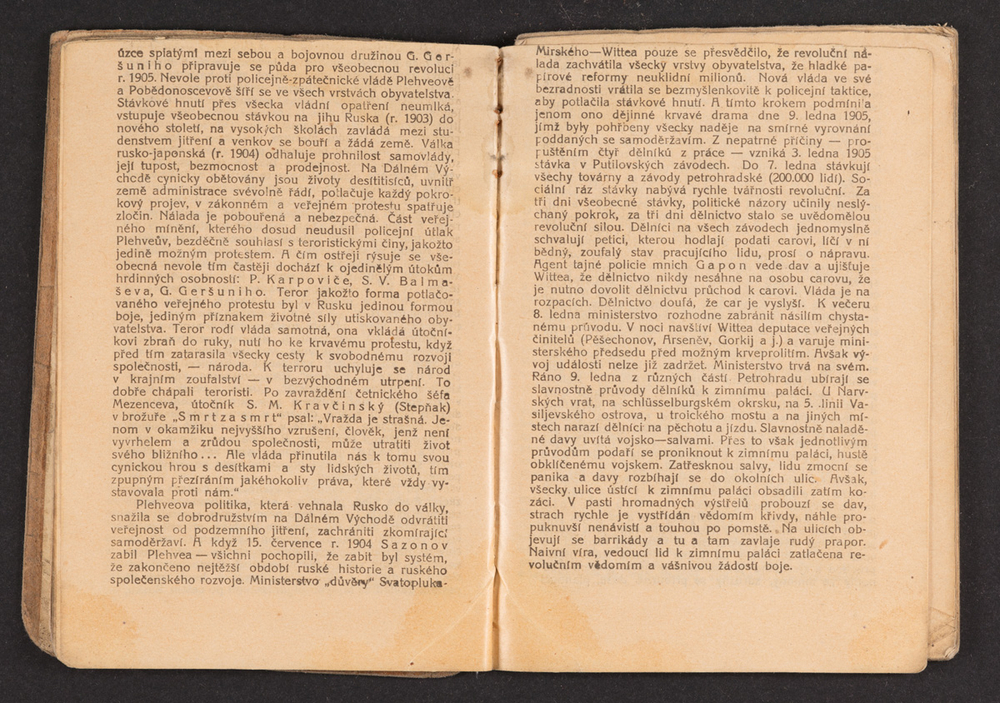 úzce spiatými mezi sebou a bojovnou družinou G. Ger-
šuniho připravuje se půda pro všeobecnou revoluci
r. 1905. Nevole proti policejně-zpátečnické vládě Plehveově
a Pobědonoscevově šíří se ve všech vrstvách obyvatelstva.
Stávkové hnutí přes všecka vládní opatření neumlká,
vstupuje všeobecnou stávkou na jihu Ruska (r. 1903) do
nového století, na vysokých školách zavládá mezi stu-
denstvem jitření a venkov se bouří a žádá země. Válka
rusko-japonská (r. 1904) odhaluje prohnilost samovlády,
její tupost, bezmocnost a prodejnost. Na Dálném Vý-
chodě cynicky obětovány jsou životy desítitisíců, uvnitř
země administrace svévolně řádí, potlačuje každý pokro-
kový projev, v zákonném a veřejném protestu spatřuje
zločin. Nálada je pobouřená a nebezpečná. Část veřej-
ného mínění, kterého dosud neudusil policejní útlak
Plehveův, bezděčně souhlasí s teroristickými činy, jakožto
jedině možným protestem. A čím ostřeji rýsuje se vše-
obecná nevole tím častěji dochází k ojedinělým útokům
hrdinných osobností: P. Karpoviče, S. V. Balma-
ševa, G. Geršuniho. Teror jakožto forma potlačo-
vaného veřejného protestu byl v Rusku jedinou formou
boje, jediným příznakem životné síly utiskovaného oby-
vatelstva. Teror rodí vláda samotná, ona vkládá útoční-
kovi zbraň do ruky, nutí ho ke krvavému protestu, když
před tím zatarasila všecky cesty k svobodnému rozvoji
společnosti, — národa. K terroru uchyluje se národ
v krajním zoufalství — v bezvýchodném utrpení. To
dobře chápali teroristi. Po zavraždění četnického šéfa
Mezenceva, útočník S. M. Kravčinský (Stepňak)
v brožuře „Smrt za smrt“ psal: „Vražda je strašná. Je-
nom v okamžiku nejvyššího vzrušení, člověk, jenž není
vyvrhelem a zrůdou společnosti, může utratiti život
svého bližního... Ale vláda přinutila nás k tomu svou
cynickou hrou s desítkami a sty lidských životů, tím
zpupným přezíráním jakéhokoliv práva, které vždy vy-
stavovala proti nám.“
Plehveova politika, která vehnala Rusko do války,
snažila se dobrodružstvím na Dálném Východě odvrátiti
veřejnost od podzemního jitření, zachrániti zkomírající
samoděržaví. A když 15. července r. 1904 Sazonov
zabil Plehvea — všichni pochopili, že zabit byl systém,
že zakončeno nejtěžší období ruské historie a ruského
společenského rozvoje. Ministerstvo „důvěry“ Svatopluka-
Mirského—Wittea pouze se přesvědčilo, že revoluční ná-
lada zachvátila všecky vrstvy obyvatelstva, že hladké pa-
pírové reformy neuklidní milionů. Nová vláda ve své
bezradnosti vrátila se bezmyšlenkovitě k policejní taktice,
aby potlačila stávkové hnutí. A tímto krokem podmínila
jenom ono dějinné krvavé drama dne 9. ledna 1905,
jímž byly pohřbeny všecky naděje na smírné vyrovnání
poddaných se samoděržavím. Z nepatrné příčiny — pro-
puštěním čtyř dělníků z práce — vzniká 3. ledna 1905
stávka v Putilovských závodech. Do 7. ledna stávkují
všechy továrny a závody petrohradské (200.000 lidí). So-
ciální ráz stávky nabývá rychle tvářnosti revoluční. Za
tři dni všeobecné stávky, politické názory učinily neslý-
chaný pokrok, za tři dni dělnictvo stalo se uvědomělou
revoluční silou. Dělníci na všech závodech jednomyslně
schvalují petici, kterou hodlají podati carovi, líčí v ní
bědný, zoufalý stav pracujícího lidu, prosí o nápravu.
Agent tajné policie mnich Gapon vede dav a ujišťuje
Wittea, že dělnictvo nikdy nesáhne na osobu carovu, že
je nutno dovolit dělnictvu průchod k carovi. Vláda je na
rozpacích. Dělnictvo doufá, že car je vyslyší. K večeru
8. ledna ministerstvo rozhodne zabránit násilím chysta-
nému průvodu. V noci navštíví Wittea deputace veřejných
činitelů (Pěšechonov, Arseněv, Gorkij a j.) a varuje mini-
sterského předsedu před možným krveprolitím. Avšak vý-
voj událostí nelze již zadržet. Ministerstvo trvá na svém.
Ráno 9. ledna z různých částí Petrohradu ubírají se
slavnostně průvody dělníků k zimnímu paláci. U Narv-
ských vrat, na schlüsselburgském okrsku, na 5. linii Va-
siljevského ostrova, u troického mostu a na jiných mí-
stech narazí dělníci na pěchotu a jízdu. Slavnostně naladě-
né davy uvítá vojsko—salvami. Přes to však jednotlivým
průvodům podaří se proniknout k zimnímu paláci, hustě
obklíčenému vojskem. Zatřesknou salvy, lidu zmocní se
panika a davy rozbíhají se do okolních ulic. Avšak,
všecky ulice ústící k zimnímu paláci obsadili zatím ko-
záci. V pasti hromadných výstřelů probouzí se dav,
strach rychle je vystřídán vědomím křivdy, náhle pro-
puknuvší nenávistí a touhou po pomstě. Na ulicích ob-
jevují se barrikády a tu a tam zavlaje rudý prapor.
Naivní víra, vedoucí lid k zimnímu paláci zatlačena re-
volučním vědomím a vášnivou žádostí boje.